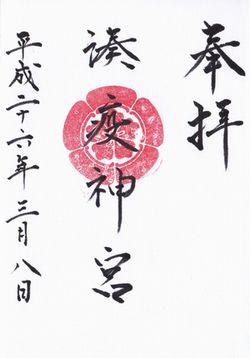 奉拝
湊疫神宮
平成二十六年三月八日